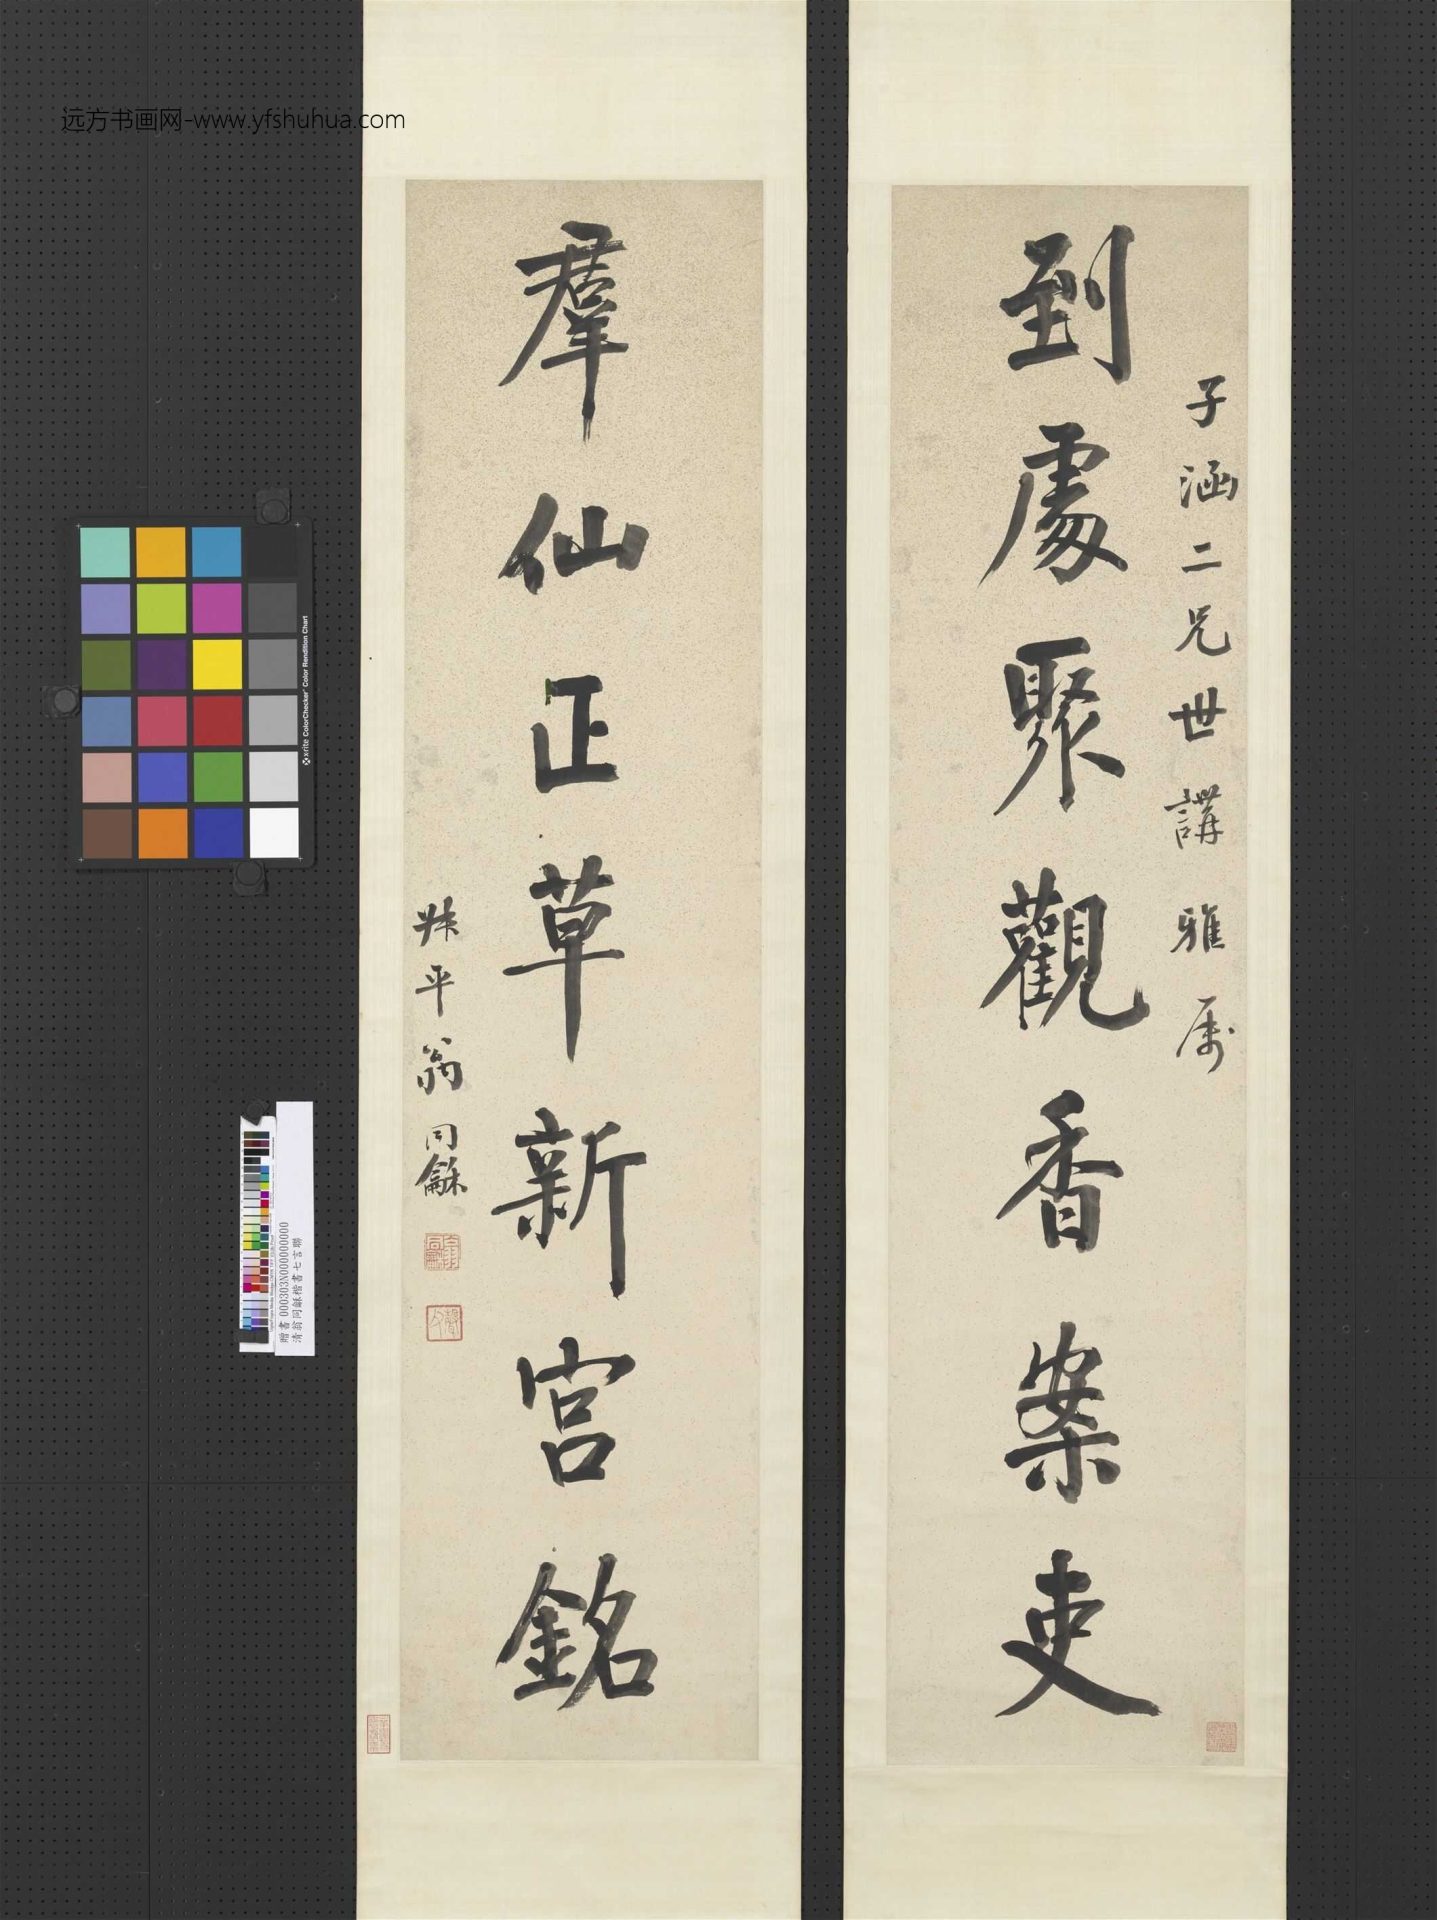 远方书画网-www.yfshuhua.com
到處聚觀香案吏
子涵二兄世講雅属
羣仙正草新宫銘
叔平翁同龢
x·rite ColorChecker Color Rendition Chart
贈書 000303N000000000
清翁同龢楷書七言聯